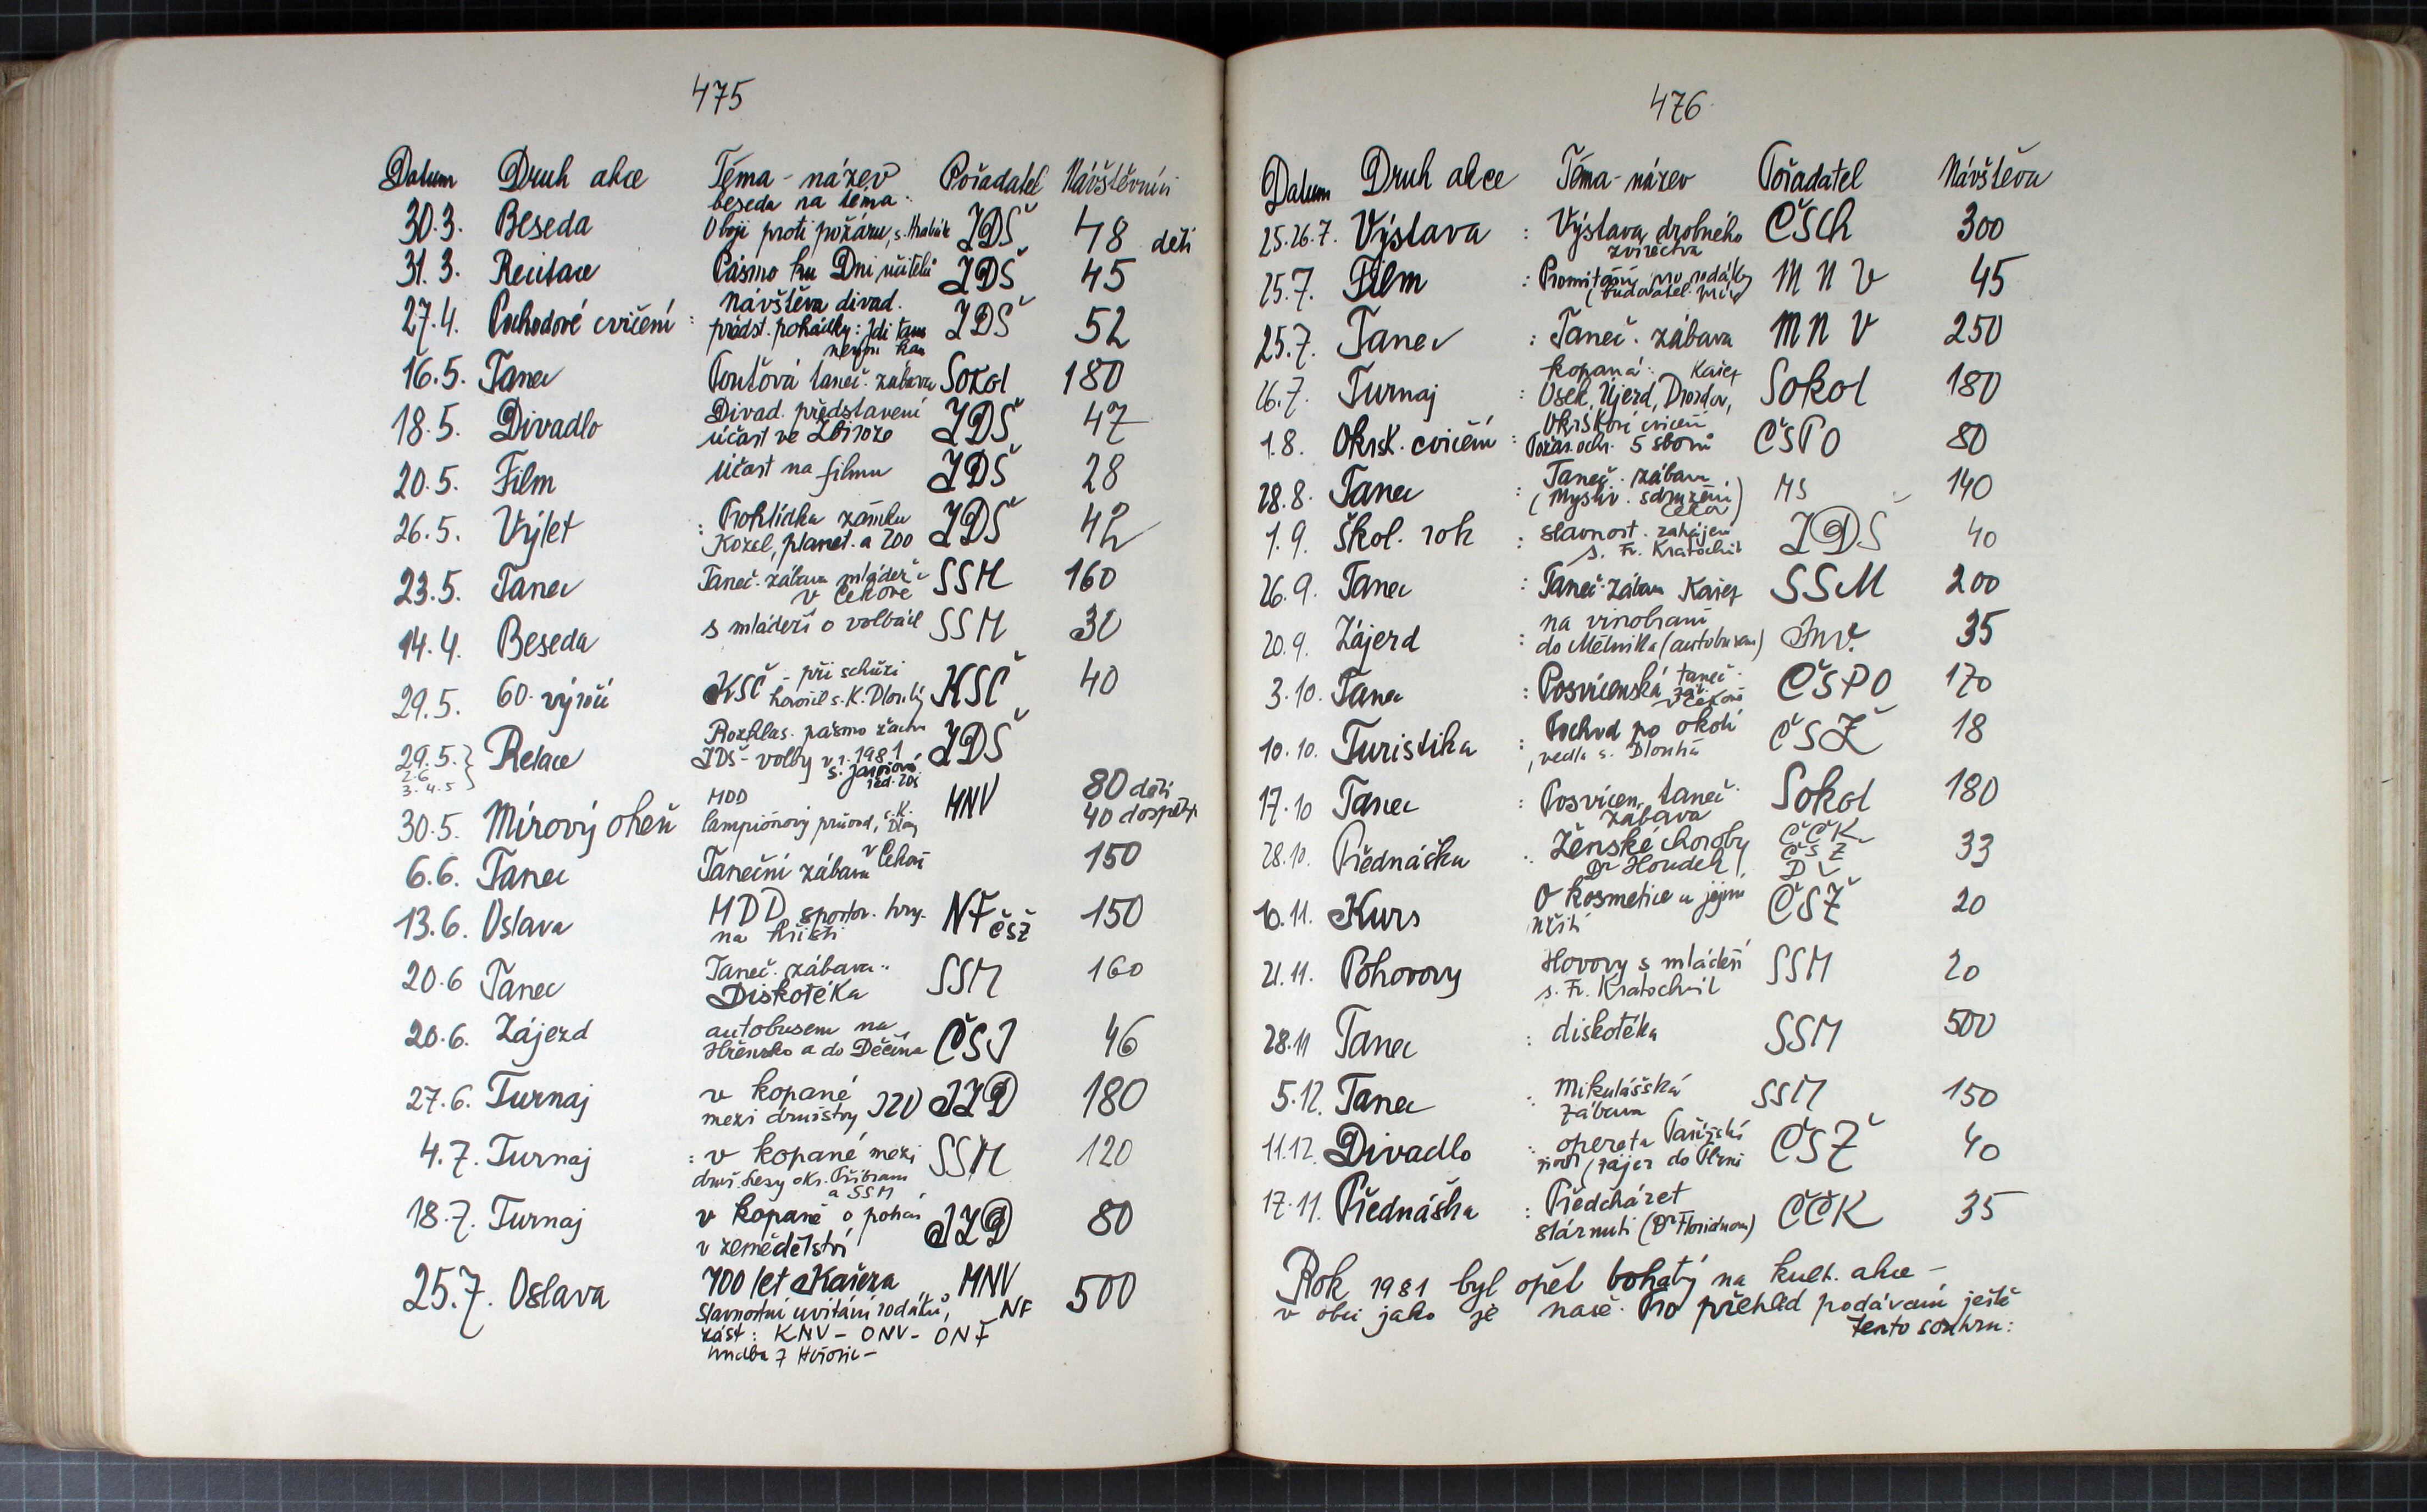 475
Datum Druh akce Téma - název Pořadatel Návštěvníci
beseda na téma:
30.3. Beseda O boji proti požáru, s. Hrabák ZDŠ 48 dětí
31.3. Recitace Pásmo ku Dni učitelů ZDŠ 45
Návštěva divad.
27.4. Pochodové cvičení : předst. pohádky: Jdi tam ZDŠ 52
nevím kam
16.5. Tanec Pouťová taneč. zábava Sokol 180
18.5. Divadlo Divad. představení ZDŠ 47
účast ve Zbiroze
20.5. Film účast na filmu ZDŠ 28
26.5. Výlet : Prohlídka zámku ZDŠ 42
Kozel, planet. a ZOO
23.5. Tanec Taneč. zábava mládeže SSM 160
v Čekově
14.4. Beseda s mládeží o volbách SSM 30
29.5. 60. výročí KSČ - při schůzi KSČ 40
hovořil s. K. Dlouhý
Rozhlas. pásmo žáků
29.5. } Relace ZDŠ - volby v r. 1981 ZDŠ
2.6.
3.4.5 řed. ZDŠ
MDD 80 dětí
30.5. Mírový oheň lampiónový průvod, s. K. MNV 40 dospěl.
6.6. Tanec Taneční zábava v Čekově 150
13.6. Oslava MDD sportov. hry NF ČSŽ 150
na hřišti
20.6 Tanec Taneč. zábava: SSM 160
Diskotéka
20.6. Zájezd autobusem na ČSŽ 46
Hřensko a do Děčína
27.6. Turnaj v kopané JZD 180
mezi družstvy JZD
4.7. Turnaj : v kopané mezi SSM 120
druž. Lesy okr. Příbram
a SSM
18.7. Turnaj v kopané o pohár JZD 80
v zemědělství
25.7. Oslava 700 let Kařeza MNV 500
Slavnostní uvítání rodáků, NF
zást: KNV - ONV - ONF
hudba z Hořovic -
476
Datum Druh akce Téma - název Pořadatel Návštěva
25.26.7. Výstava : Výstava drobného ČSCH 300
zvířectva
25.7. Film : Promítání pro rodáky MNV 45
25.7. Tanec : Taneč. zábava MNV 250
kopaná: Kařez
26.7. Turnaj : Osek, Újezd, Drozdov, Sokol 180
Okrskové cvičení
1.8. Okrsk. cvičení : Požár. ochr. 5 sborů ČSPO 80
28.8. Tanec : Taneč. zábava MS 140
(Mysliv. sdružení
Čekov)
1.9. Škol. rok : slavnost. zahájení ZDŠ 40
s. Fr. Kratochvíl
26.9. Tanec : Taneč. zábava Kařez SSM 200
na vinobraní
20.9. Zájezd : do Mělníka (autobusem) 35
3.10. Tanec : Posvícenská taneč. ČSPO 170
záb. v Čekově
10.10. Turistika : Pochod po okolí ČSŽ 18
, vedla s. Dlouhá
17.10 Tanec : Posvícen. taneč. Sokol 180
zábava
28.10. Přednáška : Ženské choroby ČČK 33
Dr Houdek ČSŽ
DV
10.11. Kurs O kosmetice a jejím ČSŽ 20
užití
21.11. Pohovory Hovory s mládeží SSM 20
s. Fr. Kratochvíl
28.11 Tanec : diskotéka SSM 500
5.12. Tanec : Mikulášská SSM 150
zábava
11.12. Divadlo : opereta Pařížský ČSŽ 40
život, zájez do Plzně
17.11. Přednáška : Předcházet ČČK 35
stárnutí
Rok 1981 byl opět bohatý na kult. akce -
v obci jako je naše. Pro přehled podávám ještě
tento souhrn: